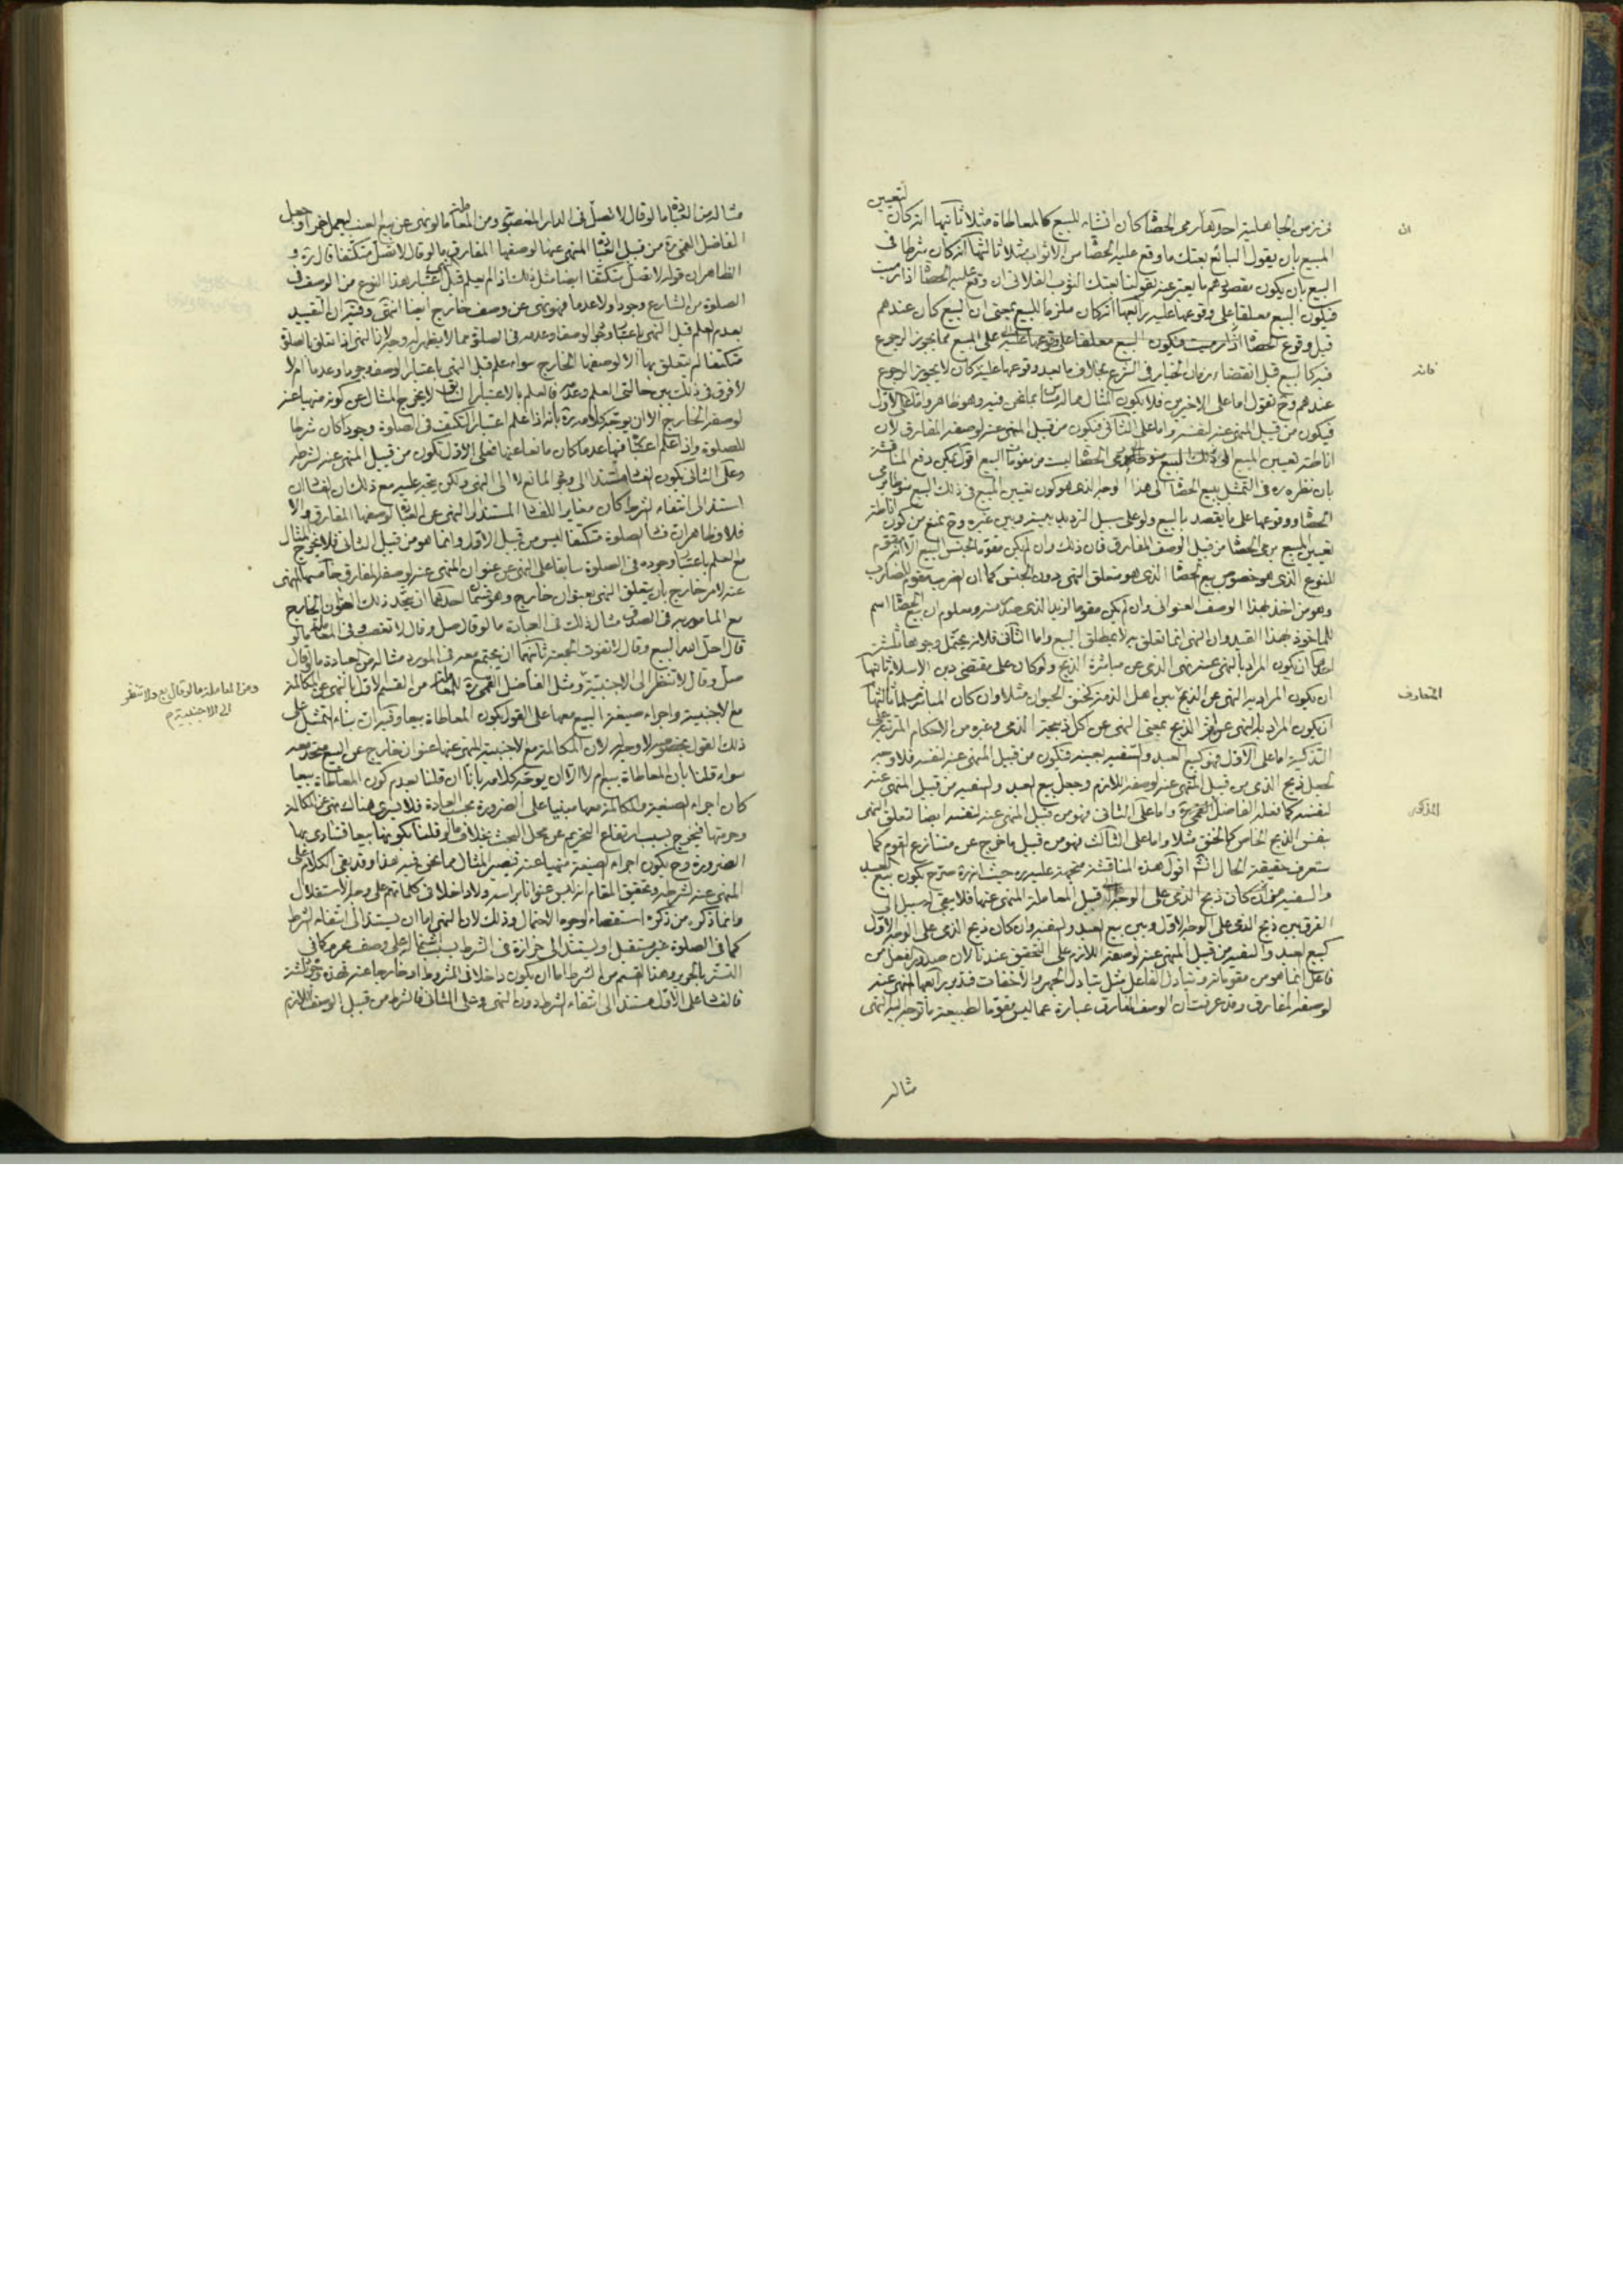 في زمن الجاهلية احدها رمي الحصا كان انشاء للبيع كالمعاطاة مثلا ثانيها انه كان لتعيين
المبيع بان يقول البائع بعتك ما وقع عليه الحصا من الاثواب مثلا ثالثها انه كان شرطا في
البيع بان يكون مقصودهم ما يعبر عنه بقولنا بعتك الثوب الفلاني ان وقع عليه الحصا اذا رميت
فيكون البيع معلقا على وقوعها عليه رابعها انه كان ملزما للبيع بمعنى ان البيع كان عندهم
قبل وقوع الحصا اذا رميت فيكون البيع معلقا على وقوعها عليه على المبيع مما يجوز الرجوع
فيه كالبيع قبل انقضاء زمان الخيار في الشرع بخلاف ما بعد وقوعها عليه كان لا يجوز الرجوع
عندهم وح نقول اما على الاخيرين فلا يكون المثال مما له مساس بما نحن فيه وهو ظاهر واما على الاول
فيكون من قبيل المنهي عنه لنفسه واما على الثاني فيكون من قبيل المنهي عنه لوصفه المفارق لان
اناطة تعيين المبيع في ذلك البيع برمي الحصا ليست من مقومات البيع اقول يمكن دفع المناقشة
بان نظره ره في التمثيل ببيع الحصا الى هذا الوجه الذي هو كون تعيين المبيع في ذلك البيع منوطا برمي
الحصا ووقوعها على ما يقصد بالبيع ولو على سبيل الترديد بينه وبين غيره وح نمنع من كون اناطة
تعيين المبيع برمي الحصا من قبيل الوصف المفارق فان ذلك وان لم يكن مقوما لجنس البيع الا انه مقوم
للنوع الذي هو خصوص بيع الحصا الذي هو متعلق النهي دون الجنس كما ان الضرب مقوم للضارب
وهو من اخذ بهذا الوصف العنواني وان لم يكن مقوما لزيد الذي صدر منه ومعلوم ان بيع الحصا اسم
للماخوذ بهذا القيد وان النهي انما تعلق به لا بمطلق البيع واما الثاني فلانه يحتمل وجوها ثلثة
احدها ان يكون المراد بالنهي عنه نهي الذمي عن مباشرة الذبح ولو كان على مقتضى دين الاسلام ثانيها
ان يكون المراد به النهي عن الذبح بين اهل الذمة كخنق الحيوان مثلا وان كان المباشر مسلما ثالثها
ان يكون المراد به النهي عن اثر الذبح بمعنى النهي عن اكل ذبيحة الذمي وغيره من الاحكام المترتبة على
التذكية اما على الاول فهو كبيع العبد والسفيه بعينه فيكون من قبيل المنهي عنه لنفسه فلا وجه
لجعل ذبح الذمي من قبيل المنهي عنه لوصفه اللازم وجعل بيع العبد والسفيه من قبيل المنهي عنه
لنفسه كما فعله الفاضل القمي ره واما على الثاني فهو من قبيل المنهي عنه لنفسه ايضا لتعلق النهي
بنفس الذبح الخاص كالخنق مثلا واما على الثالث فهو من قبيل ما خرج عن متنازع القوم كما
ستعرف حقيقة الحال انشه اقول هذه المناقشة متجهة عليه ره حيث انه ره صرح بكون بيع العبد
والسفيه كان ذبح الذمي على الوجه قبيل المعاملة المنهي عنها فلا يبقى سبيل الى
الفرق بين ذبح الذمي على الوجه الاول وبين بيع العبد والسفيه وان كان ذبح الذمي على الوجه الاول
كبيع العبد والسفيه من قبيل المنهي عنه لوصفه اللازم على التحقيق عندنا لان صدور الفعل من
فاعل انما هو من مقوماته وتبادل الفاعل مثل تبادل الجهر والاخفات فتدبر رابعها المنهي عنه
لوصفه المفارق وقد عرفت ان الوصف المفارق عبارة عما ليس مقوما لطبيعة ما توجه اليه النهي
ان
فانه
المتعارف
المذكور
مثاله
مثاله من العبادة ما لو قال لا تصل في الدار المغصوبة ومن المعاملة ما لو نهى عن بيع العنب ليعمل خمرا وجعل
الفاضل القمي ره من قبيل العبادة المنهي عنها لوصفها المفارق ما لو قال لا تصل متكتفا قال ره و
الظاهر ان قوله لا تصل متكتفا ايضا مثل ذلك اذا لم يعلم قبل اعتبار هذا النوع من الوصف في
الصلوة من الشارع وجودا ولا عدما فهو نهي عن وصف خارج ايضا انتهى وفيه ان التقييد
بعدم العلم قبل النهي باعتبار وجود الوصف او عدمه في الصلوة مما لا يظهر له وجه لان النهي اذا تعلق بالصلوة
متكتفا لم يتعلق بها الا لوصفها الخارج سواء علم قبل النهي باعتبار الوصف وجودا وعدما ام لا
لا فرق في ذلك بين حالتي العلم وعدمه فالعلم بالاعتبار السابق لا يخرج المثال عن كونه منهيا عنه
لوصفه الخارج الا ان يوجه كلامه ره بانه اذا علم اعتبار التكتف في الصلوة وجودا كان شرطا
للصلوة واذا علم اعتباره فيها عدما كان مانعا عنها فعلى الاول يكون من قبيل المنهي عنه لشرطه
وعلى الثاني يكون الفساد مستندا الى وجود المانع لا الى النهي ولكن يتجه عليه مع ذلك ان الفساد ان
استند الى انتفاء الشرط كان مغايرا للفساد المستند الى النهي عن العبادة لوصفها المفارق والا
فلا وظاهر ان فساد الصلوة متكتفا ليس من قبيل الاول وانما هو من قبيل الثاني فلا يخرج المثال
مع العلم باعتبار وجوده في الصلوة سابقا على النهي عن عنوان المنهي عنه لوصفه المفارق خامسها المنهي
عنه لامر خارج بان يتعلق النهي بعنوان خارج وهو قسمان احدهما ان يتحد ذلك العنوان الخارج
مع المامور به في الصدق مثال ذلك في العبادة ما لو قال صل وقال لا تغصب وفي المعاملة ما لو
قال احل الله البيع وقال لا تفوت الجمعة ثانيهما ان يجتمع معه في المورد مثاله من العبادة ما لو قال
صل وقال لا تنظر الى الاجنبية ومثل الفاضل القمي ره للمعاملة من القسم الاول بالنهي عن المكالمة
مع الاجنبية واجراء صيغة البيع معها على القول بكون المعاطاة بيعا وفيه ان بناء التمثيل على
ذلك القول بخصوصه لا وجه له لان المكالمة مع الاجنبية المنهي عنها عنوان خارج عن البيع متحد معه
سواء قلنا بان المعاطاة بيع ام لا الا ان يوجه كلامه بانا ان قلنا بعدم كون المعاطاة بيعا
كان اجراء الصيغة والمكالمة معها مبنيا على الضرورة بحسب العادة فلا يبقى هناك نهي عن المكالمة
وحرمتها فيخرج بسبب ارتفاع التحريم عن محل البحث بخلاف ما لو قلنا بكونها بيعا فتتادى بها
الضرورة وح يكون اجراء الصيغة منهيا عنه فيصير المثال مما نحن فيه هذا وقد بقي الكلام على
المنهي عنه لشرطه وتحقيق المقام انه ليس عنوانا براسه ولا داخلا في كلماتهم على وجه الاستقلال
وانما ذكره من ذكره استقصاء لوجوه الاحتمال وذلك لان النهي اما ان يستند الى انتفاء الشرط
كما في الصلوة غير مستقبل او يستند الى حزازة في الشرط بسبب اشتماله على وصف محرم كما في
التستر بالحرير وهذا القسم من الشرط اما ان يكون داخلا في المشروط او خارجا عنه فهذه وجوه ثلثة
فالفساد على الاول مستند الى انتفاء الشرط دون النهي وعلى الثاني فالشرط من قبيل الوصف اللازم
ومن المعاملة ما لو قال بع ولا تنظر
الى الاجنبية م